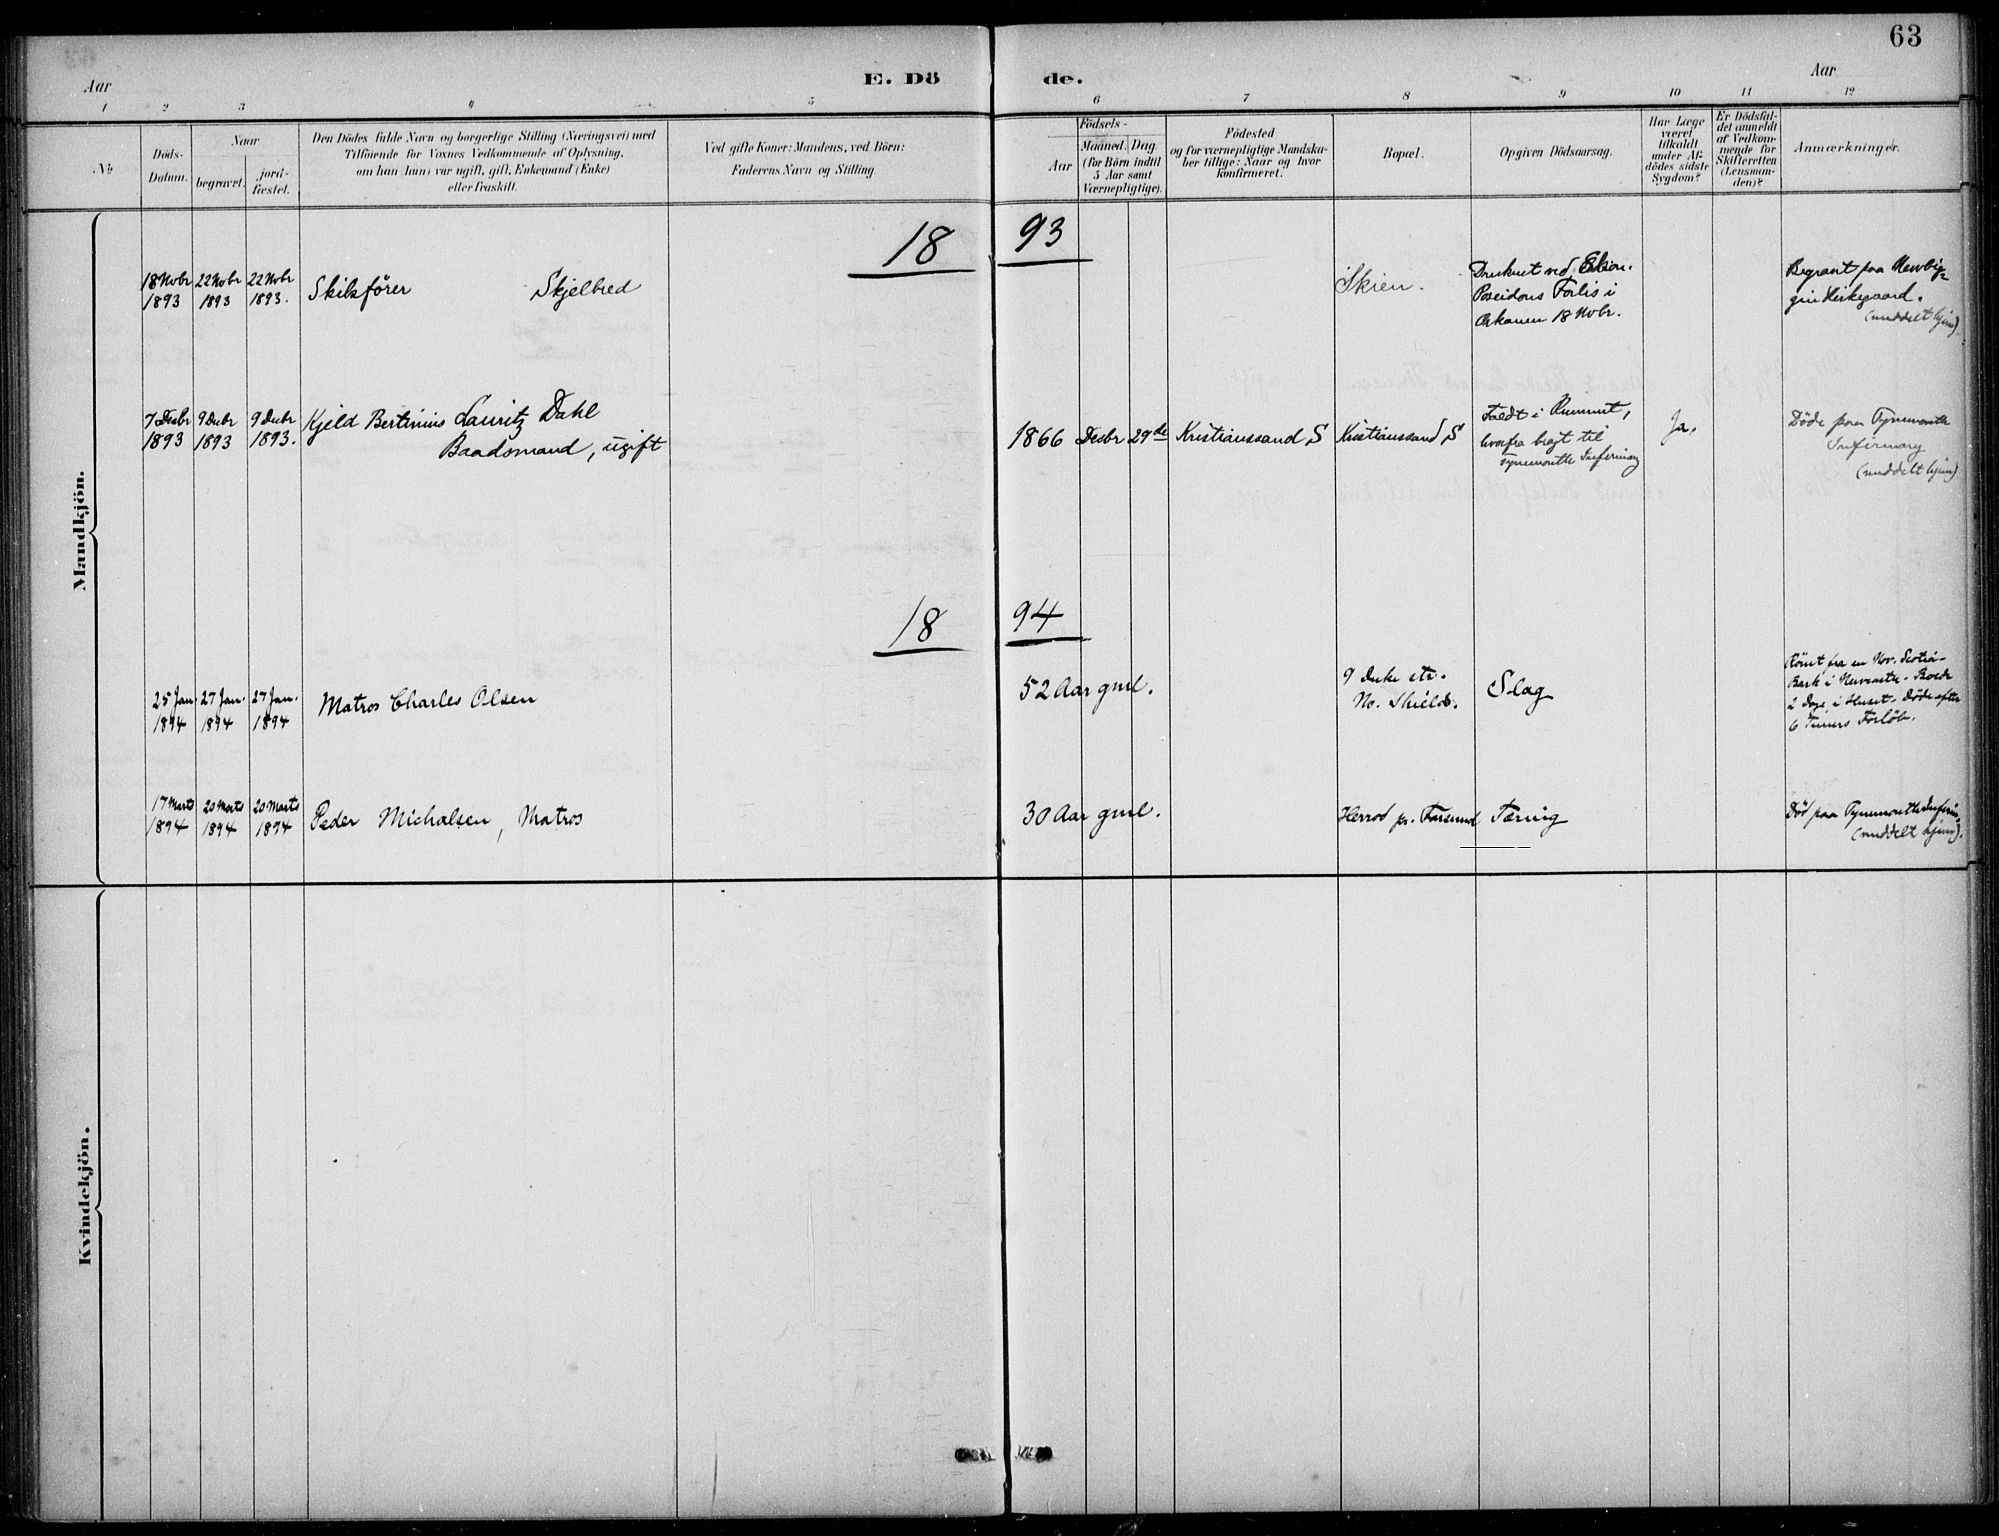 63
Aar
E. Dö
de.
Aar
1 2 3 4 5 6 7 8 9 10 11 12
No
Döds-
Datum.
Naar
begravet.
jord-
fæstet.
Den Dödes fulde Navn og borgerlige Stilling (Næringsvei) med
Tilföiende for Voxnes Vedkommende af Oplysning,
om han (hun) var ugift, gift, Enkemand (Enke)
eller fraskilt.
Ved gifte Koner: Mandens, ved Börn:
Faderens Navn og Stilling
Födsels-
Aar
Maaned.
Dag.
(for Börn indtil
5 Aar samt
Værnepligtige).
Födested
og for værnepligtige Mandska-
ber tillige: Naar og hvor
konfirmeret.
Bopæl.
Opgiven Dödsaarsag.
Har Læge
været
tilkaldt
under Af-
dödes sidste
Sygdom?
Er Dödsfal-
det anmeldt
af Vedkom-
mende for
Skifteretten
(Lensman-
den)?
Anmærkninger.
Mandkjön.
18 93
18 Novbr
1893
22 Novbr
1893
22 Novbr
1893.
Skibsförer Skjelbred
Skien.
Druknet ved
Poseidons Forlis i
Orkanen 18 Novbr.
Begravt paa Newbig-
gin Kirkegaard.
(meddelt hjem).
7 Decbr
1893
9 Decbr
1893
9 Decbr
1893.
Kjeld Bertinius Lauritz Dahl
Baadsmand, ugift
1866 Decbr 29de Kristianssand S Kristianssand S
Faldt i Rummet,
hvorfra bragt til
Tynemouth Infirmary
Ja.
Döde paa Tynemouth
Infirmary
(meddelt hjem)
18 94
25 Jan.
1894
27 Jan.
1894
27 Jan.
1894
Matros Charles Olsen
52 Aar gml.
9 Duke str.
No. Shields.
Slag
Römt fra en Nov. Scotia-
Bark i - Boede
2 Dage i Huset - Döde efter
6 Timers Forlöb.
17 Marts
1894
20 Marts
1894
20 Marts
1894
Peder Michalsen, Matros
30 Aar gml.
Herred pr. Farsund
Tæring
Död paa Tynemouth Infirm.
(meddelt hjem).
Kvindekjön.